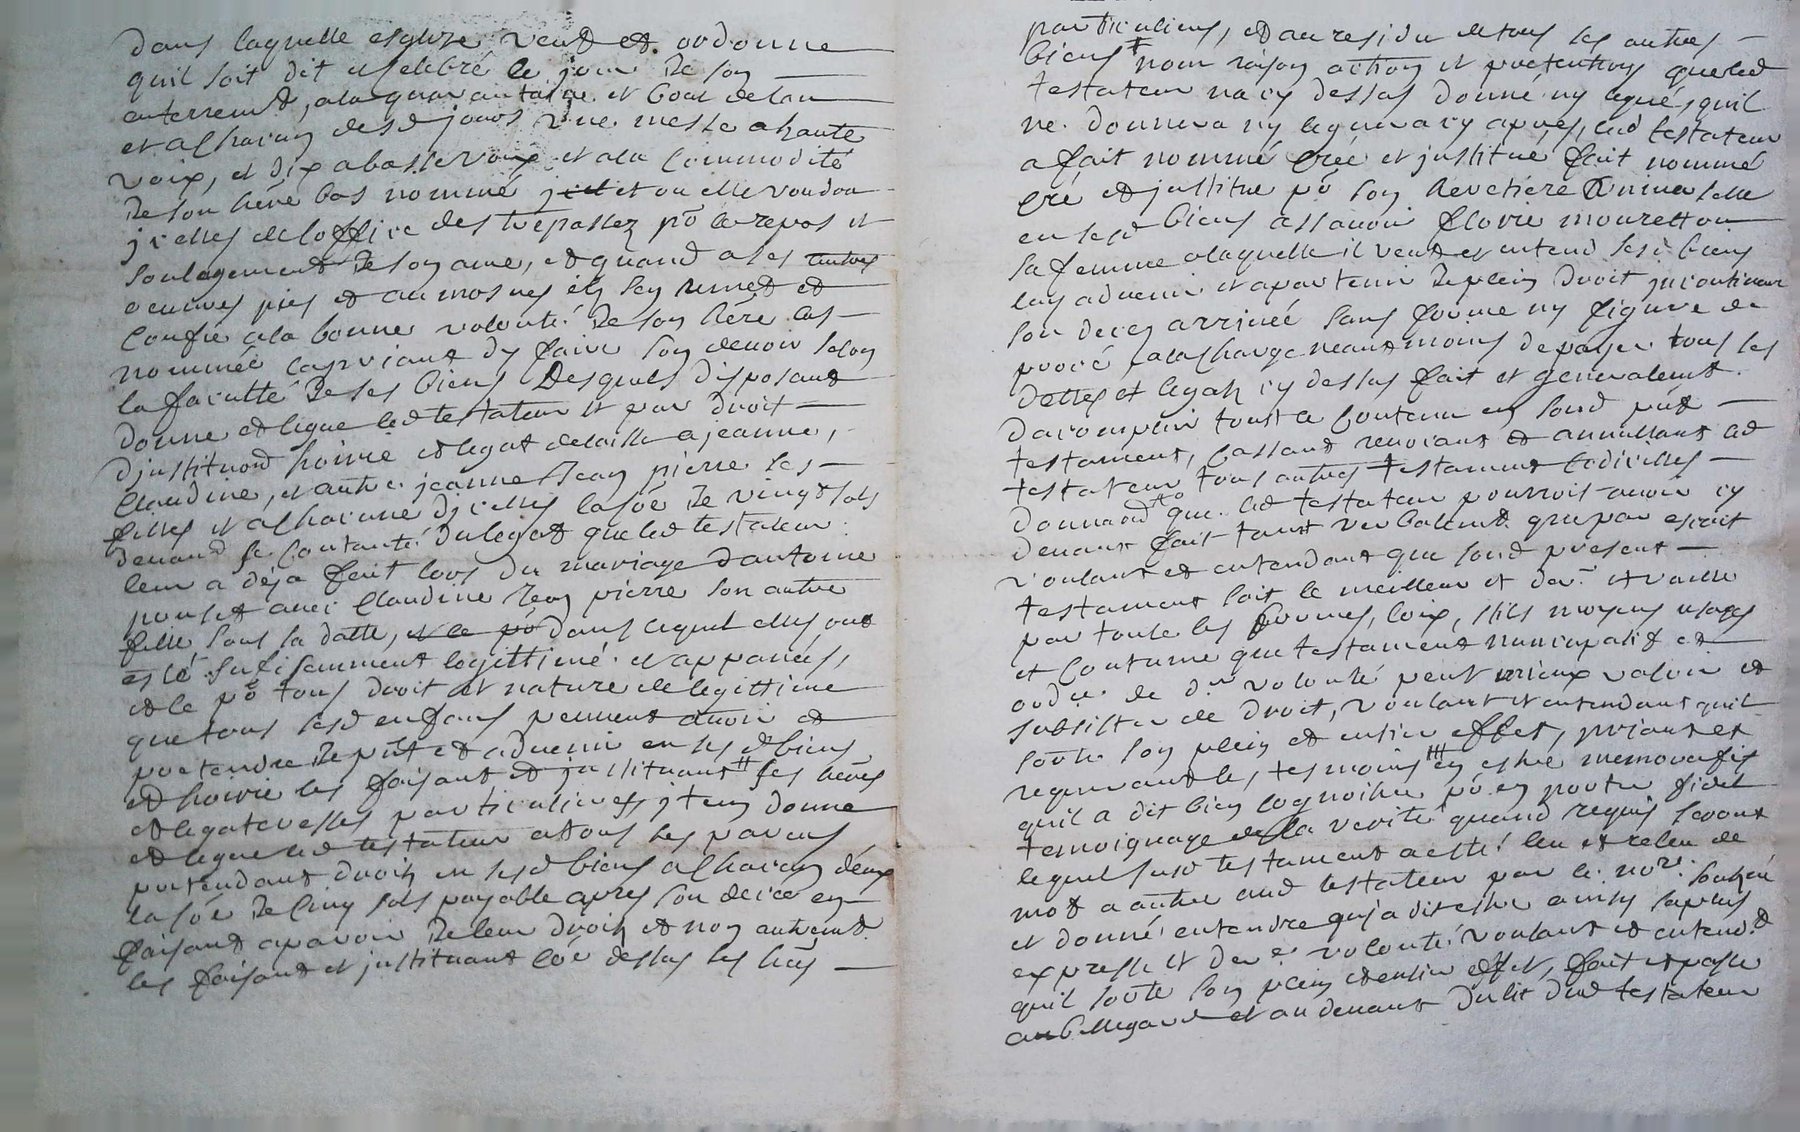 dans laquelle esglize veut et ordonne
quil soit dit et celebré le jour de son
enterremt, ala quarantaine et bout delan
et alchacun desd jours une messe ahaute
voix, et dix abasse voix et ala commodité
de son hére bas nommé et ou elle voudra
jcelles de loffice des trepassez po le repos et
soulagement de son ame, et quand ales autres
oeuvres pies et aumosnes il sen remet et
confie ala bonne volonté de son hére bas
nommée la priant dy faire son devoir selon
la faculté de ses biens Desquels disposant
donne et legue led testateur et par droit
djnstituon hoirie et legat delaisse ajeanne,
Claudine, et autre jeanne Jean pierre ses
filles et alchacune djcelles la soē de vingt sols
devant se contanté du legat que led testateur
leur a déja fait lors du mariage dantoine
pouset avec Claudine Jean pierre son autre
fille sous sa datte, et le po dans lequel elles ont
esté sufisemment legittimé et appanées,
et le po tous droit et nature de legittime
que tous sesd enfans peuvent avoir et
pretendre de pnt et advenir en ses d biens
et hoirie les faisant et jnstituant # ses héres
et legateresses particulieres jtem donne
et legue led testateur atous ses parens
pretendant droit en sesd biens alchacun deux
la soē de cinq sols payable apres son deces en
faisant aparoir de leur droit et non autremt
les faisant et jnstituant coē dessus ses hérs
particuliers, et au residu de tous ses autres
biens # nom raison action et pretentions queled
testateur na cy dessus donné ny legué, quil
ne donnera ny leguera cy apres, led testateur
a fait nommé créé et jnstitué fait nomme
cré et jnstitue po son héretiere universelle
en sesd biens assavoir Florie mouretton
sa femme alaquelle il veut et entend sesd biens
luy advenir et apartenir de plein droit jncontinant
son deces arrivée sans forme ny figure de
procé ala charge neantmoins depayer tous ses
dettes et legats cy dessus fait et generalemt
dacomplir tout le contenu en sond pnt
testament, cassant revocant et annullant led
testateur tous autres testament codicilles
donnaon que led testateur pourroit avoir cy
devant fait tant verbalemt que par escrit
voulant et entendant que sond present
testament soit le meilleur et der et vaille
par toute les formes, loix, stils moyens usages
et coutume que testament nuncupatif et
ord.re de d.re volonté peut mieux valoir et
subsister de droit, voulant et entendant quil
sorte son plein et entier effet, priant et
requerant les, tesmoins en estre memoratifs
quil a dit bien cognoitre po en porter fidel
temoignage de la verité quand requis seront
lequel susd testament a esté leu et releu de
mot a autre aud testateur par le nore soubné
et donné entendre quja dit estre ainsy sa plus
expresse et dere volonté voulant et entendt
quil sorte son plein et entier effet, fait et passe
au Bellegard et au devant du lit dud testateur